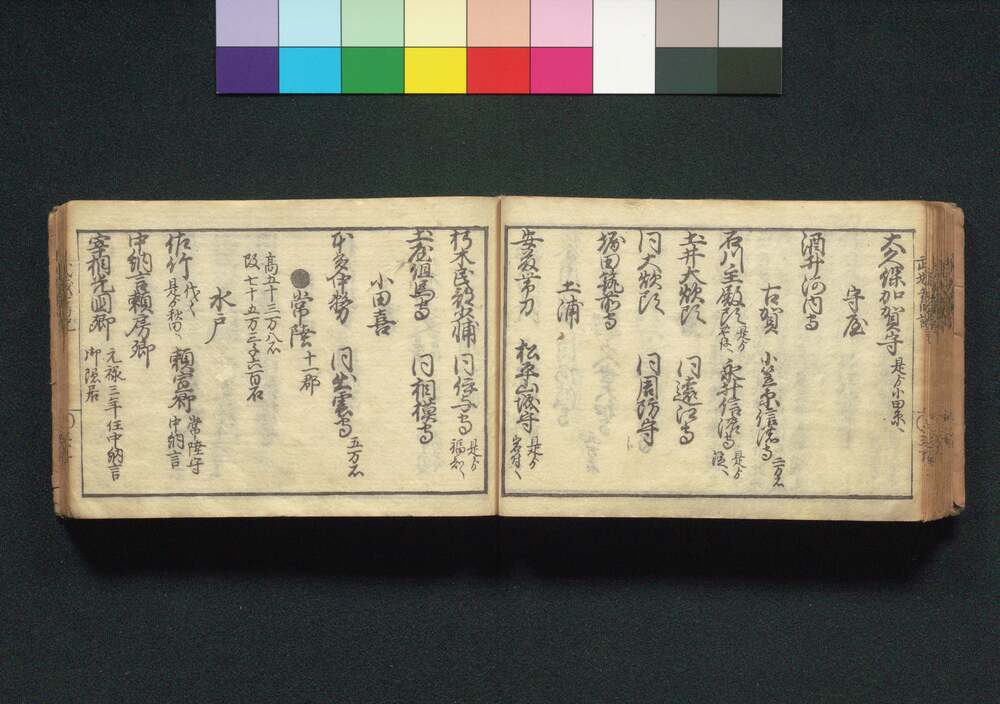 大久保加賀守 是ゟ小田原へ
守屋
酒井河内守
古賀 小笠原信濃守 二万石
石川主殿頭 是ゟ 永井信濃守 是ゟ淀へ
土井大炊頭 同遠江守
同大炊頭 同周防守
堀田筑前守
土浦
安藤帯刀 松平山城守 是ゟ岩村へ
朽木民部少輔 同伊予守 是ゟ福知へ
土屋但馬守 同相模守
小田喜
本多中務 同出雲守 五万石
●常陸 十一郡
高五十三万八石
段七十五万三千六百石
水戸
佐竹 代々是ゟ秋田へ 頼宣卿 常陸守中納言
中納言頼房卿
宰相光圀卿 元禄三年任中納言御隠居